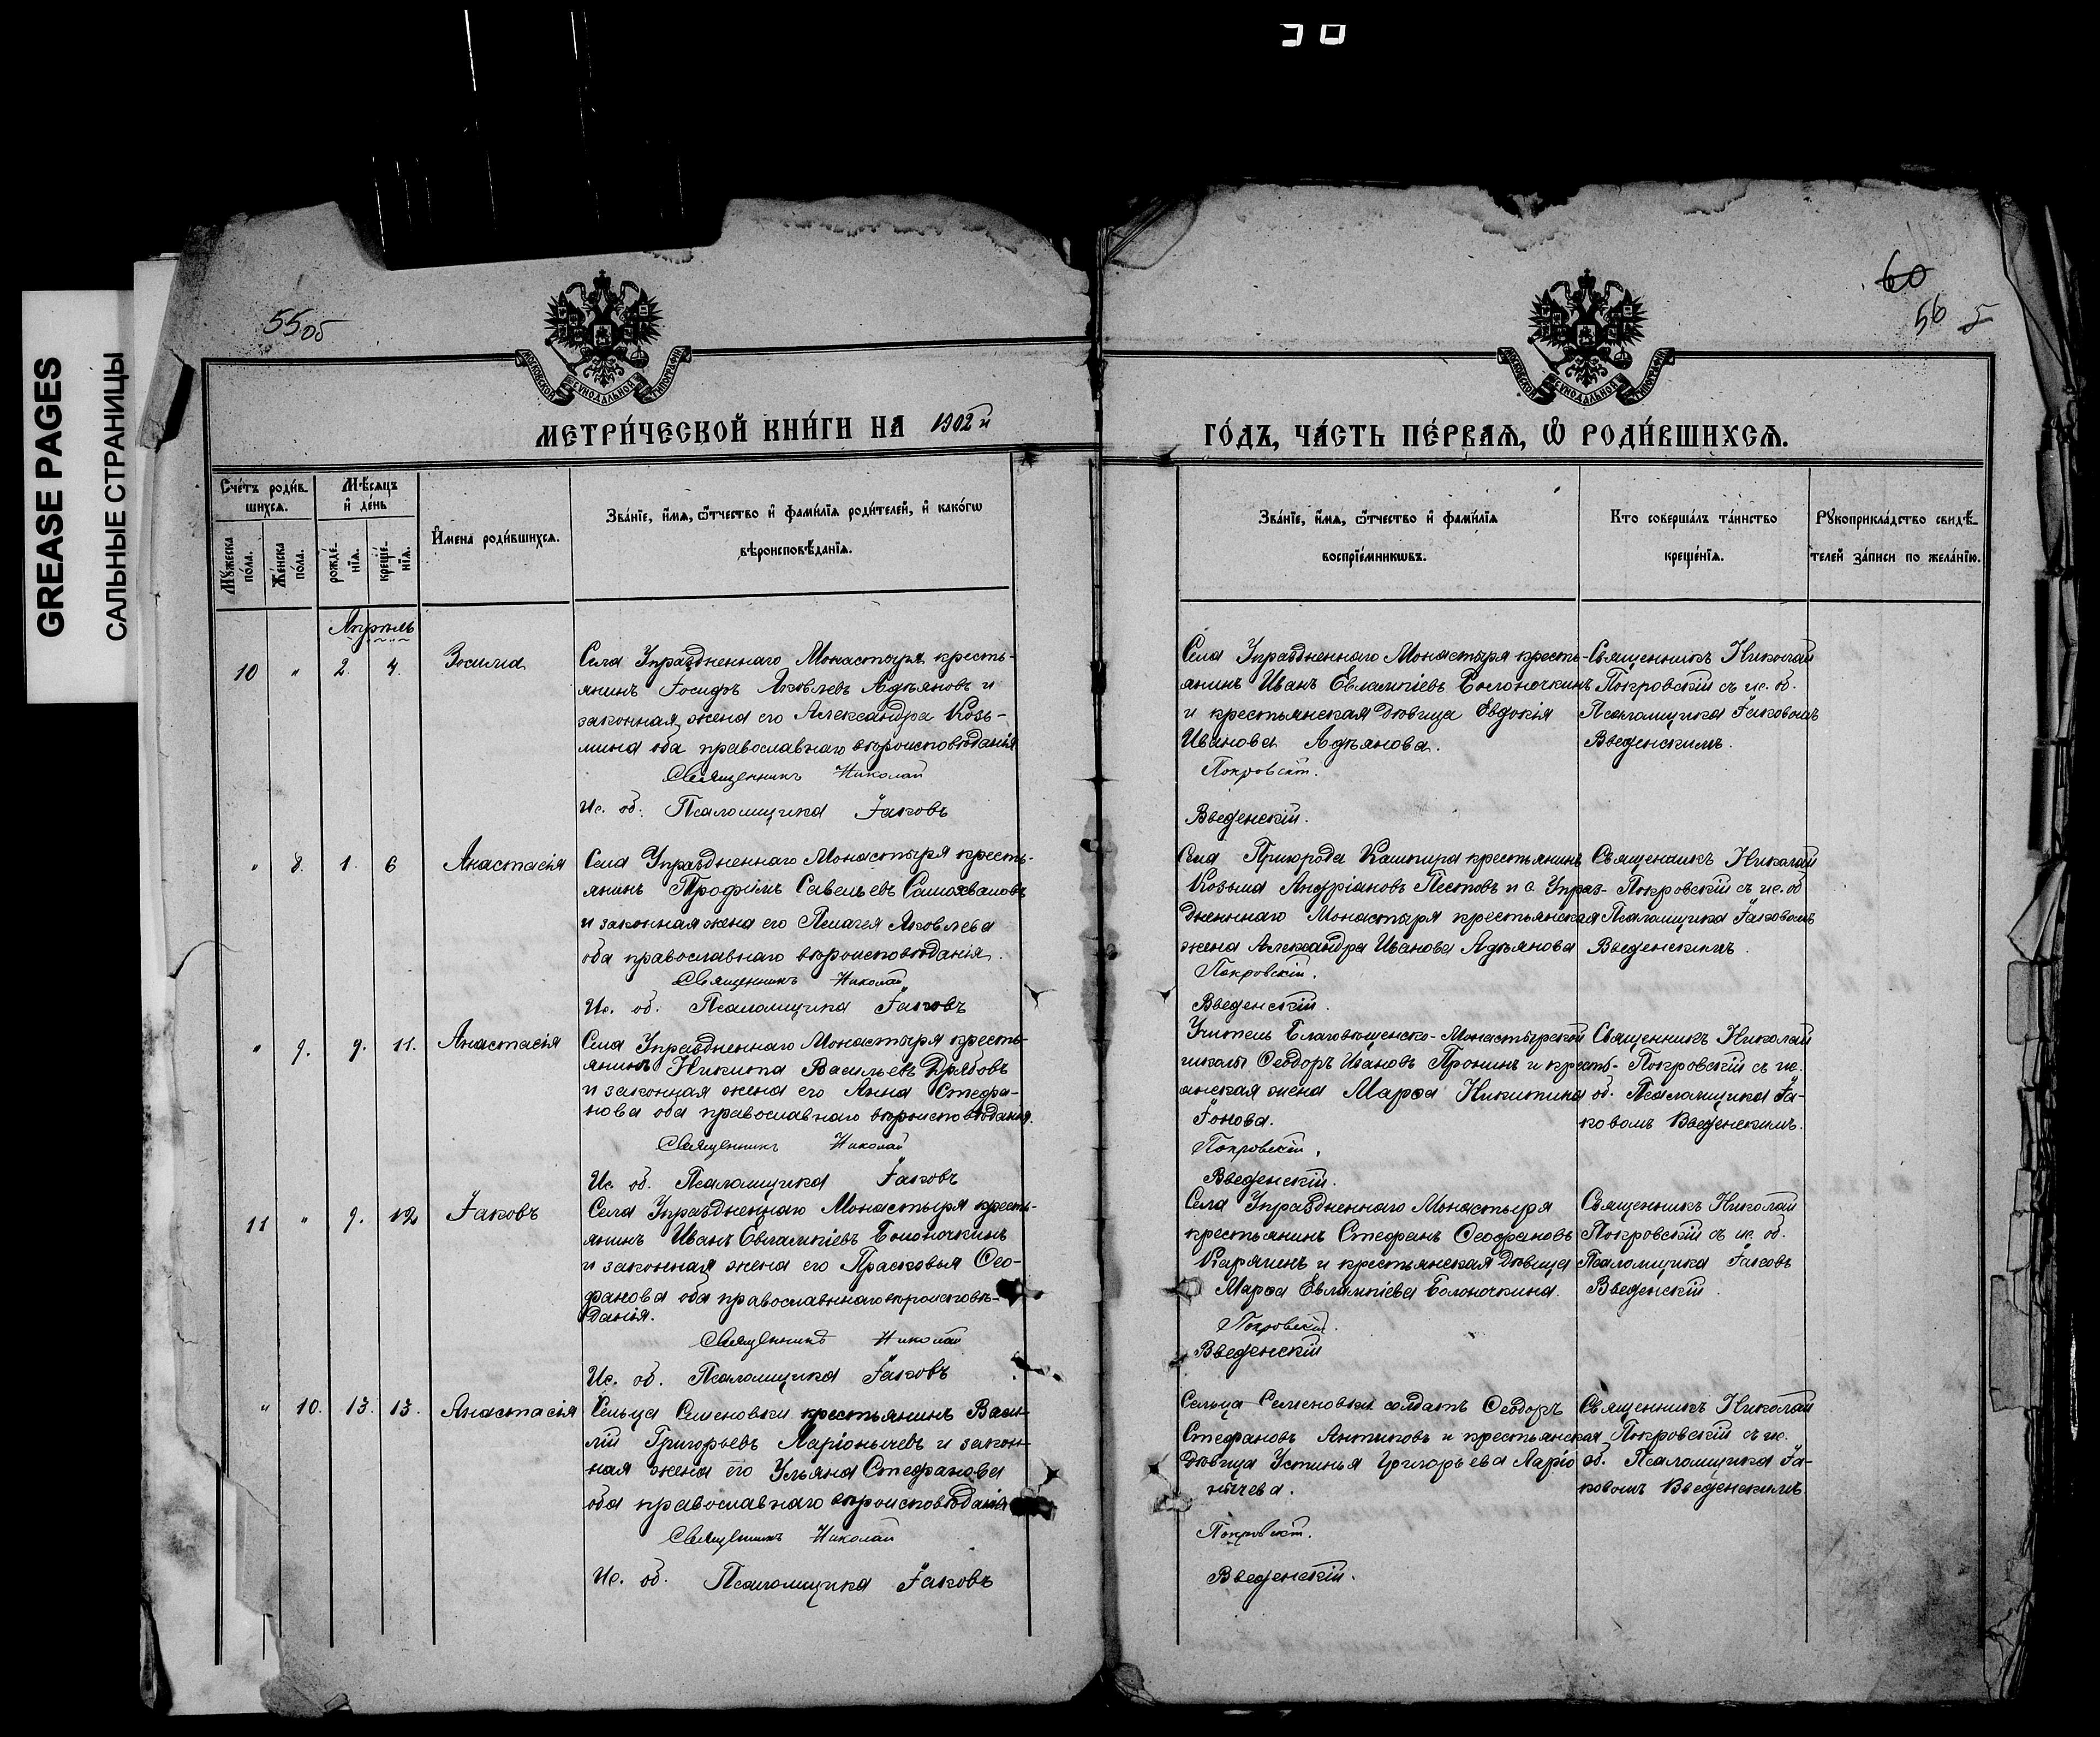 GREASE PAGES
САЛЬНЫЕ СТРАНИЦЫ
55 об
60
56
МОСКОВСКОЙ СѴНОДАЛЬНОЙ ТИПОГРАФІИ
МОСКОВСКОЙ СѴНОДАЛЬНОЙ ТИПОГРАФІИ
МЕТРИ́ЧЕСКОЙ КНИ́ГИ НА 1902 й
ГО́ДЪ, ЧА́СТЬ ПЕ́РВАЯ, Ѡ҆ РОДИ́ВШИХСЯ.
Сче́тъ роди́в-
шихся.
Му́жеска по́ла.
Же́нска пола.
Мѣ́сяцъ
и҆ де́нь
рожде́-
нїя.
креще́-
нїя.
И҆мена роди́вшихся.
Зва́нїе, и҆́мя, ѻ҆́тчество и҆ фами́лїя роди́телей, и҆ како́гѡ
вѣроисповѣ́данїя.
Зва́нїе, и҆́мя, ѻ҆́тчество и҆ фами́лїя
воспрїе́мникѡвъ.
Кто соверша́лъ та́инство
креще́нїя.
Рꙋкоприкла́дство свидѣ́-
телей за́писи по жела́нїю.
Апрѣль
10 " 2. 4. Зосима
Села Упраздненнаго Монастыря кресть-
янинъ Іосифъ Яковлевъ Адьяновъ и
законная жена его Александра Козь-
мина оба православнаго вѣроисповѣданія
Священникъ Николай
Ис. об. Псаломщика Іаковъ
Села Упраздненнаго Монастыря кресть-
янинъ Иванъ Евлампіевъ Болоночкинъ
и крестьянская дѣвица Евдокія
Иванова Адьянова.
Покровскій.
Введенскій.
Священникъ Николай
Покровскій съ ис. об.
Псаломщика Іаковомъ
Введенскимъ.
" 8. 1. 6 Анастасія
Села Упраздненнаго Монастыря кресть-
янинъ Трофимъ Савельевъ Самохваловъ
и законная жена его Пелагея Яковлева
оба православнаго вѣроисповѣданія.
Священникъ Николай
Ис. об. Псаломщика Іаковъ
Села Пригорода Кашпира крестьянинъ
Козьма Андріановъ Пестовъ и с. Упраз-
дненнаго Монастыря крестьянская
жена Александра Иванова Адьянова
Покровскій.
Введенскій.
Священникъ Николай
Покровскій съ ис. об
Псаломщика Іаковомъ
Введенскимъ.
" 9. 9. 11. Анастасія
Села Упраздненнаго Монастыря кресть-
янинъ Никита Васильевъ Дрябовъ
и законная жена его Анна Стефа-
нова оба православнаго вѣроисповѣданія.
Священникъ Николай
Ис. об. Псаломщика Іаковъ
Учитель Благовѣщенско-Монастырской
школы Ѳеодоръ Ивановъ Пронинъ и кресть-
янская жена Марѳа Никитина
Іонова.
Покровскій.
Введенскій.
Священникъ Николай
Покровскій съ ис.
об. Псаломщика Іа-
ковомъ Введенскимъ.
11 " 9. 12 Іаковъ
Села Упраздненнаго Монастыря кресть-
янинъ Иванъ Евлампіевъ Болоночкинъ
и законная жена его Прасковья Ѳео-
фанова оба православнаго вѣроисповѣ-
данія.
Священникъ Николай
Ис. об. Псаломщика Іаковъ
Села Упраздненнаго Монастыря
крестьянинъ Стефанъ Ѳеофановъ
Карягинъ и крестьянская дѣвица
Марѳа Евлампіева Болоночкина.
Покровскій.
Введенскій
Священникъ Николай
Покровскій съ ис. об.
Псаломщика Іаковъ
Введенскій.
" 10. 13. 13. Анастасія
Сельца Семеновки крестьянинъ Васи-
лій Григорьевъ Ларіонычевъ и закон-
ная жена его Ульяна Стефанова
оба православнаго вѣроисповѣданія
Священникъ Николай
Ис. об. Псаломщика Іаковъ
Сельца Семеновки солдатъ Ѳеодоръ
Стефановъ Антиповъ и крестьянская
дѣвица Устинья Григорьева Ларіо
нычева.
Покровскій.
Введенскій.
Священникъ Николай
Покровскій съ ис.
об. Псаломщика Іа-
ковомъ Введенскимъ